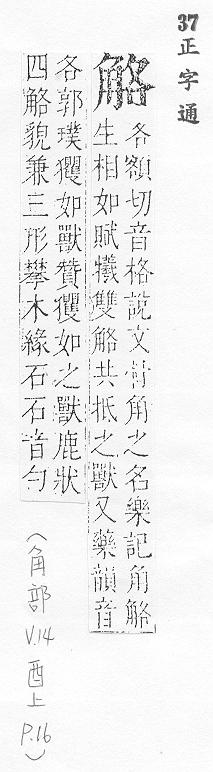 37正字通
觡
各額切音格說文骨角之名樂記角觡
生相如賦犧雙觡共抵之獸又藥韻音
各郭璞玃如獸贊玃如之獸鹿狀
四觡貌兼三形攀木緣石石音勺
(角部 V.14 酉上 P.16)